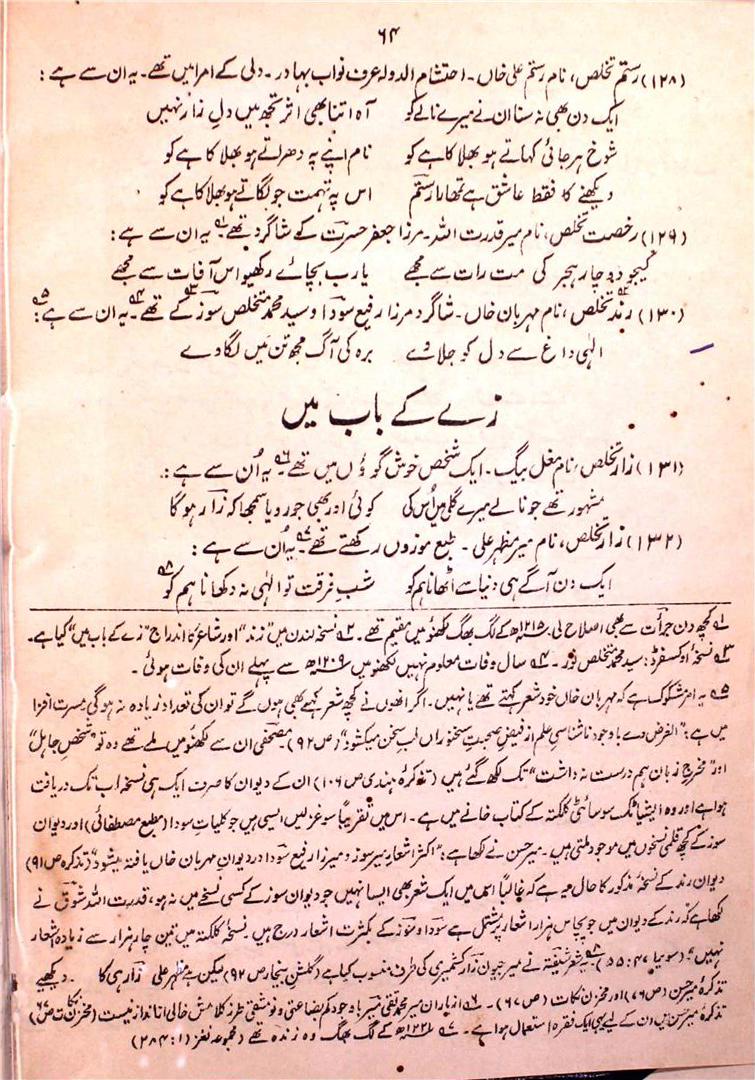 ۶۴
(۱۲۸) رستم تخلص، نام رستم علی خاں۔ احتشام الدولہ عرف نواب بہادر۔ دلی کے امرا میں تھے۔ یہ ان سے ہے:
ایک دن بھی نہ سنا ان نے میرے نالے کو آہ اتنا بھی اثر تجھ میں دلِ زار نہیں
شوخ ہرجائی کہاتے ہو بھلا کا ہے کو نام اپنے پہ دھراتے ہو بھلا کا ہے کو
دیکھنے کا فقط عاشق ہے تمھارا رستم اس پہ تہمت جو لگاتے ہو بھلا کا ہے کو
(۱۲۹) رخصت تخلص، نام میر قدرت اللہ۔ مرزا جعفر حسرت کے شاگرد تھے۔ یہ ان سے ہے:
کیجو دوچار ہجر کی مت رات سے مجھے یا رب بچائے رکھیو اس آفات سے مجھے
(۱۳۰) رند تخلص، نام مہربان خاں۔ شاگرد مرزا رفیع سودا و سید محمد متخلص سوز کے تھے۔ یہ ان سے ہے:
الٰہی داغ سے دل کو جلا دے برہ کی آگ مجھ تن میں لگا دے
زے کے باب میں
(۱۳۱) زار تخلص، نام مغل بیگ۔ ایک شخص خوش گوؤں میں تھے۔ یہ اُن سے ہے:
مشہور تھے جو نالے میرے گلی میں اُس کی کوئی اور بھی جو رویا سمجھا کہ زار ہوگا
(۱۳۲) زار تخلص، نام میر مظہر علی۔ طبع موزوں رکھتے تھے۔ یہ اُن سے ہے:
ایک دن آگے ہی دنیا سے اٹھانا ہم کو شبِ فرقت تو الٰہی نہ دکھانا ہم کو
۱؎ کچھ دن جرأت سے بھی اصلاح لی۔ ۱۲۱۵ھ کے لگ بھگ لکھنؤ میں مقیم تھے۔ ۲؎ نسخہ لندن میں "زند" اور شاعر کا اندراج "زے کے باب میں" کیا ہے۔
۳؎ نسخۂ اوکسفرڈ: سید محمد متخلص نور۔ ۴؎ سال وفات معلوم نہیں لکھنؤ میں ۱۲۰۹ھ سے پہلے ان کی وفات ہوئی۔
۵؎ یہ امر مشکوک ہے کہ مہربان خاں خود شعر کہتے تھے یا نہیں۔ اگر انھوں نے کچھ شعر کہے بھی ہوں گے تو ان کی تعداد زیادہ نہ ہوگی مسرت افزا
میں ہے: "الغرض وے باوجود ناشناسی علم از فیضِ صحبتِ سخنوراں لب سخن میکشود" (ص ۹۲) مصحفی ان سے لکھنؤ میں ملے تھے وہ تو "شخص جاہل"
اور "مخرجِ زبان ہم درست نہ داشت" تک لکھ گئے ہیں (تذکرۂ ہندی ص ۱۰۶) ان کے دیوان کا صرف ایک ہی نسخہ اب تک دریافت
ہوا ہے اور وہ ایشیاٹک سوسائٹی کلکتہ کے کتاب خانے میں ہے۔ اس میں تقریباً سو غزلیں ایسی ہیں جو کلیاتِ سودا (مطبع مصطفائی) اور دیوانِ
سوز کے کچھ قلمی نسخوں میں موجود ملتی ہیں۔ میر حسن نے لکھا ہے: "اکثر اشعارِ میر سوز و میرزا رفیع سودا در دیوانِ مہربان خاں یافتہ میشود" (تذکرہ ص ۹۱)
دیوان رند کے نسخۂ مذکور کا حال یہ ہے کہ غالباً اس میں ایک شعر بھی ایسا نہیں جو دیوان سوز کے کسی نسخے میں نہ ہو، قدرت اللہ شوق نے
لکھا ہے کہ رند کے دیوان میں جو پچاس ہزار اشعار پر مشتمل ہے سودا و سوز کے بکثرت اشعار درج ہیں۔ نسخۂ کلکتہ میں تین چار ہزار سے زیادہ اشعار
نہیں" (سویرا ۴۷: ۵۵)۔ ۸؎ یہ شعر شیفتہ نے میر جیون زار کشمیری کی طرف منسوب کیا ہے (گلشن بیخار ص ۹۲) لیکن ہے مظہر علی زار ہی کا۔ دیکھیے
تذکرۂ میر حسن (ص ۷۶) اور مخزن نکات (ص ۶۷)۔ ۶؎ از یاران میر محمد تقی میر باوجود کم بضاعتی و نو مشقی طرز کلامش خالی از انداز نیست (مخزن نکات ص ۶۷)
تذکرہ میر حسن میں ان کے لیے یہی ایک فقرہ استعمال ہوا ہے۔ ۷؎ ۱۲۲۱ھ کے لگ بھگ وہ زندہ تھے (مجموعہ نغز ۱: ۲۸۴)